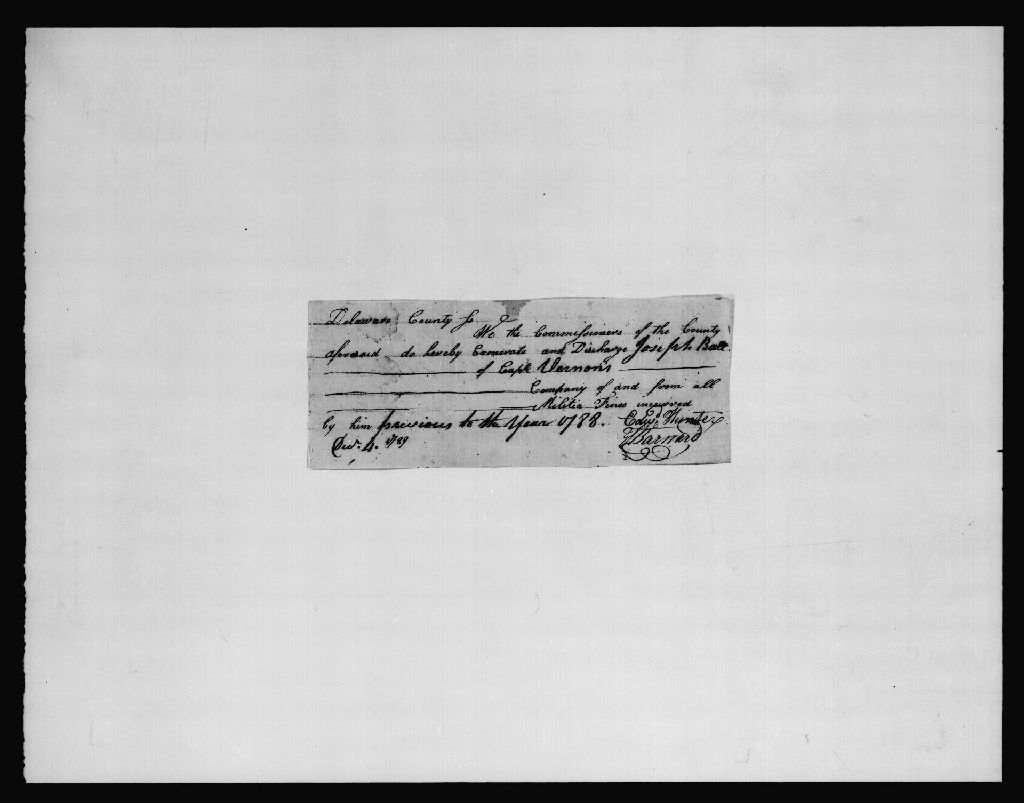 Delaware County ss
We the Commissioners of the County
aforesaid do hereby Exonerate and Discharge Joseph Ball
of Capt. Vernons
Company of and from all
Militia Fines incurred
by him previous to the Year 1788.
Decr. 4. 1789 Edwd. Hunter
Barnard